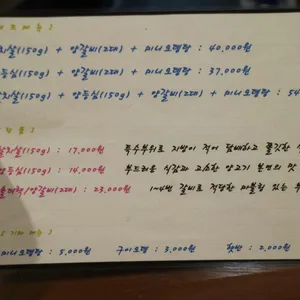 (150g) + 양갈비(2대) + 미니오뎅탕 : 40,000원
(150g) + 양갈비(2대) + 미니오뎅탕 : 37,000원
(150g) + 양등심(150g) + 양갈비(2대) + 미니오뎅탕 : 54
(150g) : 17,000원 특수부위로 지방이 적어 담백하고 쫄깃한
양등심(150g) : 14,000원 부드러운 식감과 고소한 양고기 본연의 맛
/양갈비(2대) : 23,000원 1~4번 갈비로 적당한 마블링 있는
미니오뎅탕 : 5,000원 구이오뎅 : 3,000원 햇반 : 2,000원